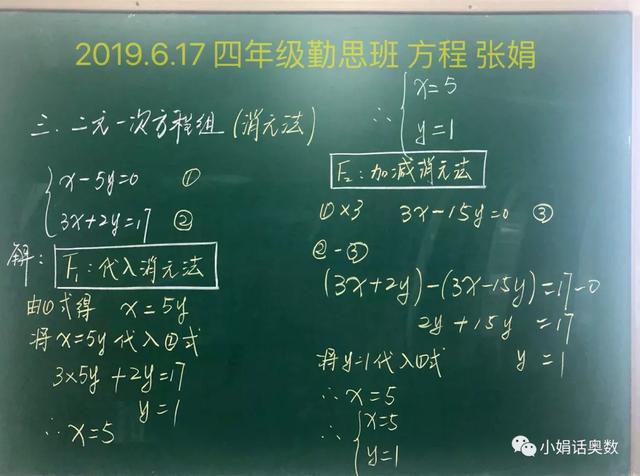 2019.6.17 四年级勤思班 方程 张娟
三、二元一次方程组(消元法)
{x-5y=0 ①
3x+2y=17 ②
解: F₁:代入消元法
由①式得 x=5y
将x=5y代入②式
3×5y+2y=17
y=1
∴x=5
∴{x=5
y=1
F₂:加减消元法
①×3 3x-15y=0 ③
②-③
(3x+2y)-(3x-15y)=17-0
2y+15y=17
y=1
将y=1代入①式
∴x=5
∴{x=5
y=1
小娟话奥数